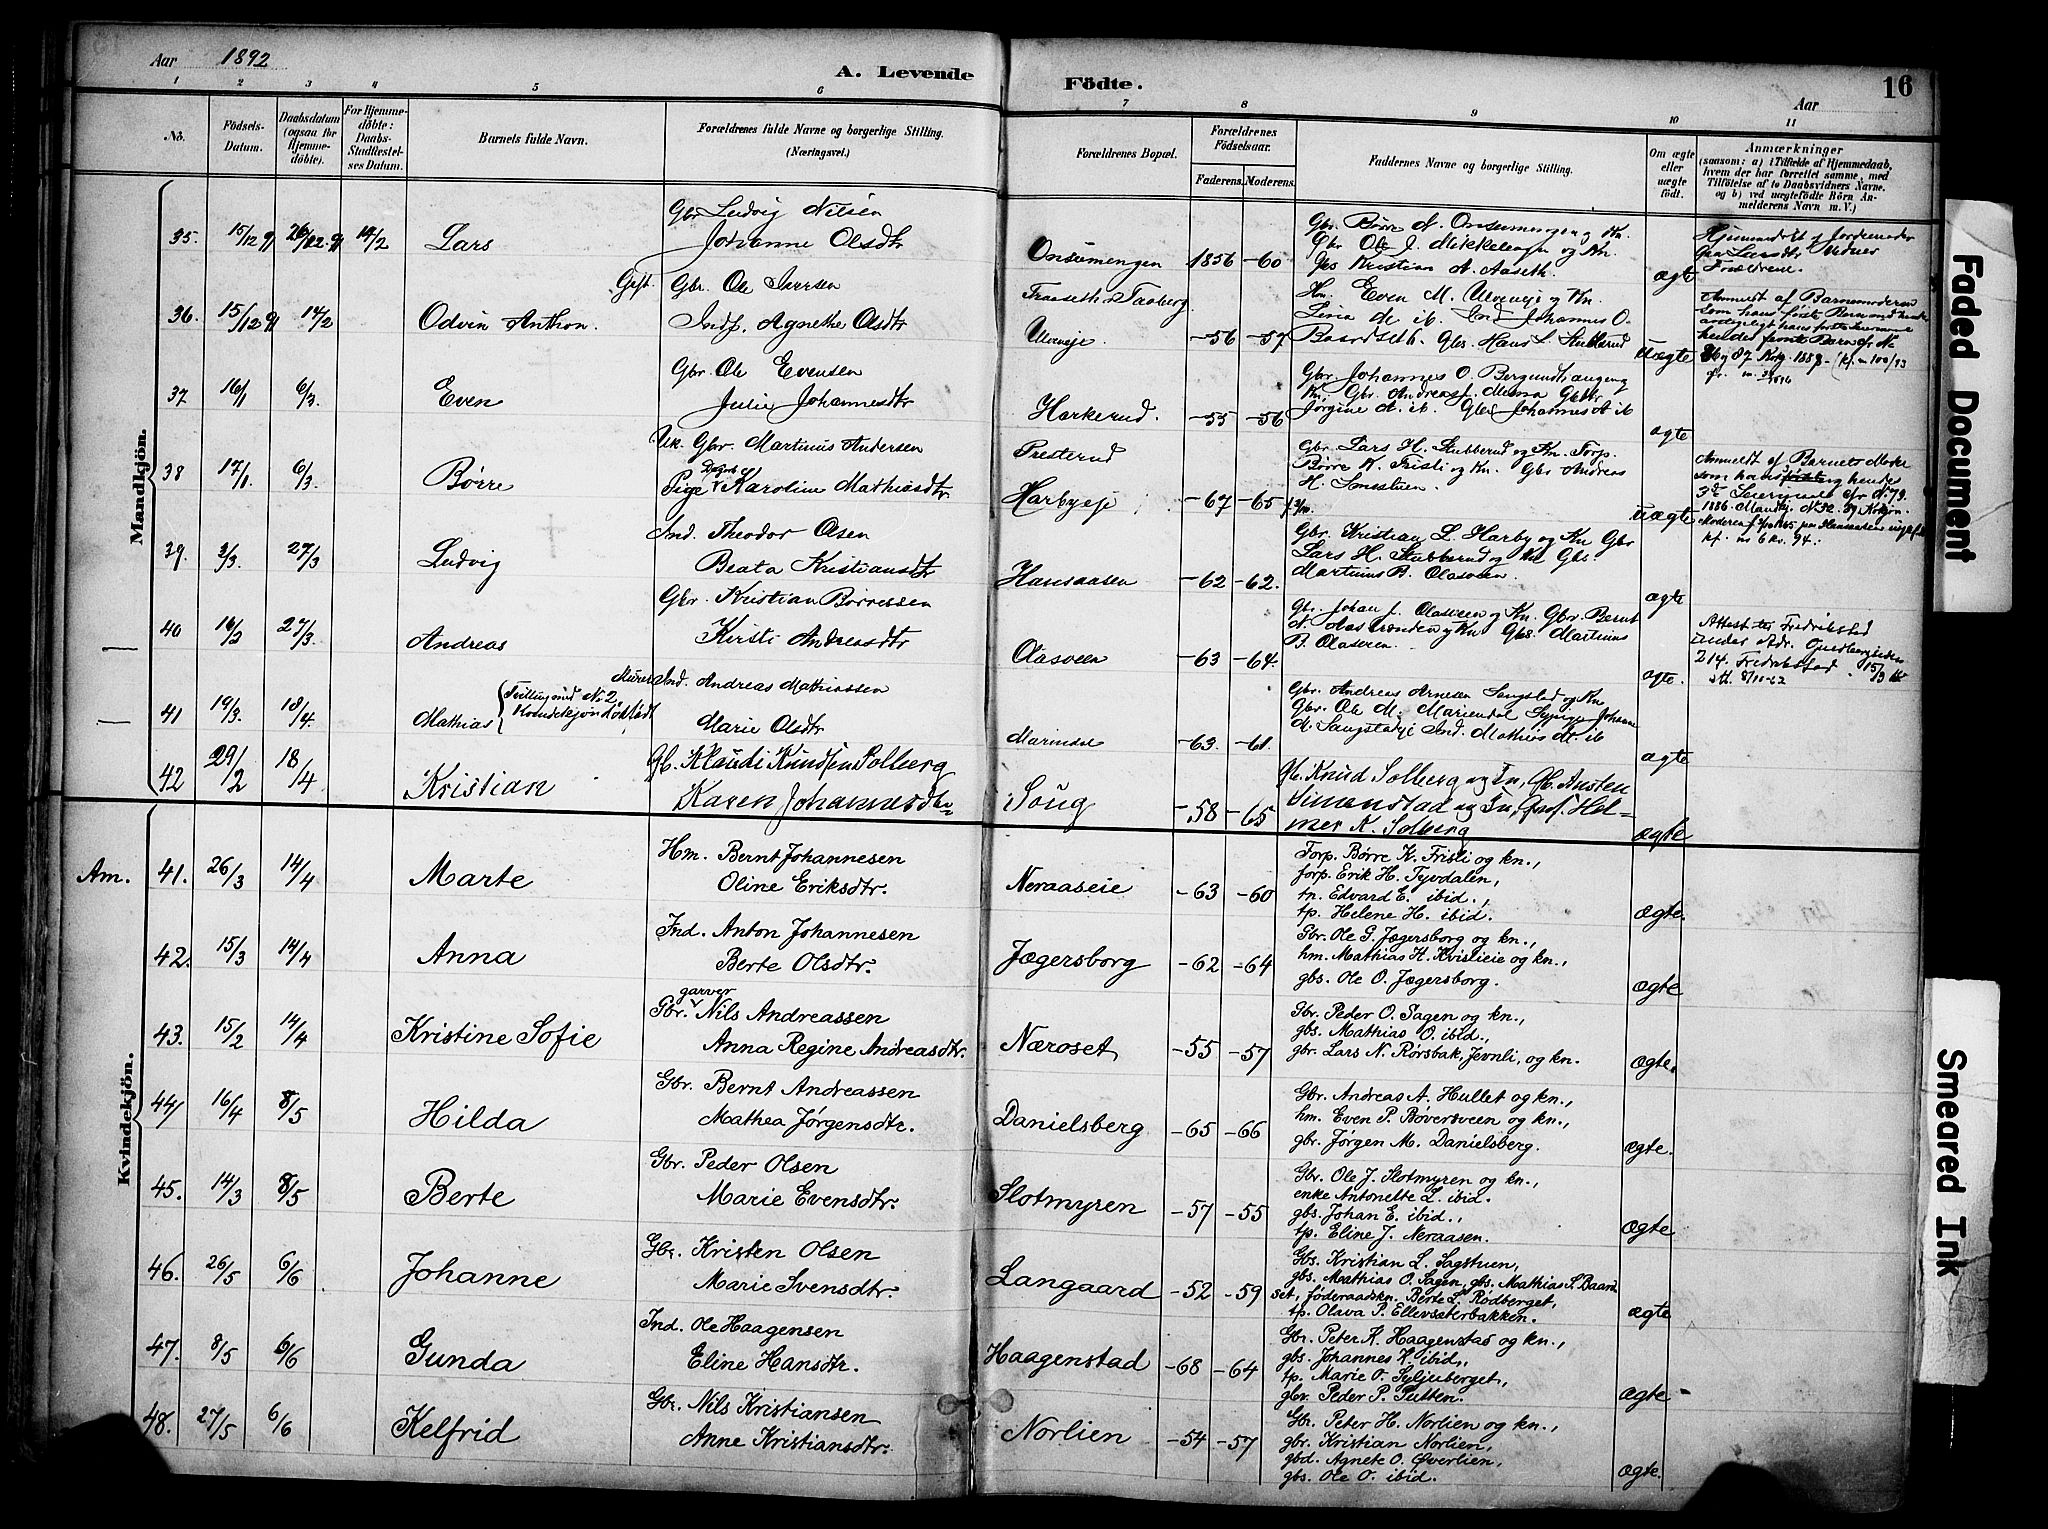 Aar 1892
A. Levende Födte.
Aar
16
1 2 3 4 5 6 7 8 9 10 11
No.
Födsels-Datum.
Daabsdatum (ogsaa for Hjemmedöbte).
For Hjemmedöbte: Daabs-Stadfæstelses Datum.
Barnets fulde Navn.
Forældrenes fulde Navne og borgerlige Stilling. (Næringsvei.)
Forældrenes Bopæl.
Forældrenes Födselsaar.
Faderens. Moderens.
Faddernes Navne og borgerlige Stilling.
Om ægte eller uægte födt.
Anmærkninger
(saasom: a) i Tilfælde af Hjemmedaab, hvem der har forrettet samme, med Tilföielse af to Daabsvidners Navne, og b) ved uægtefödte Börn Anmelderens Navn m. V.)
Mandkjön.
35. 15/12 91 26/12 91 14/2 Lars
Gbr Ludvig Nilsen
Johanne Olsdtr
Onsumengen 1856 -60
Gbr Børre N. Onsumengen og Kn.
Gbr Ole J. Mikkelengen og Kn.
Gbs Kristian A. Aaseth.
ægte
36. 15/12 91 14/2 Odvin Anthon.
Gift. Gbr. Ole Iversen
Ind. Agnethe Olsdtr
Ulveneje -56 -57
Hm. Even M. Ulveneje og Kn.
Baardseth. Gbs. Hans L. Stubberud
Uægte
Anmeldt af Barnemoderen
37 16/1 6/3. Even
Gbr. Ole Evensen
Julie Johannesdtr
Harkerud. -55 -56
Gbr Johannes O. Bergundhaugen og
Kn, Gbr. Andreas J. Mesna Gbttr
Jørgine A. ib. Gbs Johannes A ib
ægte
38 17/1. 6/3. Børre
Uk. Gbr. Martinus Andersen
Pige Karoline Mathiasdtr
Presterud
Harbyeje -67 -65
Gbr. Lars H. Stubberud og Kn. Forp.
Børre K. Fristi og Kn. Gbs Andreas
uægte
Anmeldt af Barnets Moder
39. 3/3. 27/3 Ludvig
Ind. Theodor Olsen
Beata Kristiansdtr
Hansaasen -62 -62.
Gbr. Kristian L. Harby og Kn Gbr
Lars H. Stubberud og Kn Gbs.
Martinus B. Olasveen.
ægte
40 16/2 27/3. Andreas
Gbr. Kristian Børresen
Kirsti Andreasdtr
Olasveen -63 -64.
Gbr. Johan J. Olasveen og Kn. Gbr. Bernt
Gbs. Martinus
B. Olasveen.
ægte.
Attest til Fredrikstad
214. Fredrikstad 15/3
Att. 8/10-62
41 19/3. 18/4. Mathias
Tvillingmed No 2, Kvindekjøn
Murer Ind. Andreas Mathiassen
Marie Olsdtr
Mariendal -63. -61.
Gbr. Andreas Arnesen Sangstad og Kn
Gbr. Ole M. Mariendal
Ind. Mathias M. ib
ægte
42 29/2 18/4 Kristian
Gb. Klaudi Knudsen Solberg
Karen Johannesdtr
Soug -58 -65
Gb. Knud Solberg og Kn, Gb. Austen
Simenstad og Kn, Gbs. Hel-
mer K. Solberg
ægte
Kvindekjön.
Am. 41. 26/3 14/4 Marte
Hm. Bernt Johannesen
Oline Eriksdtr.
Neraaseie -63 -60
Forp. Børre K. Fristi og kn.,
forp. Erik H. Tyvdalen,
tn. Edvard E. ibid.,
tp. Helene H. ibid.
ægte.
42. 15/3 14/4 Anna
Ind. Anton Johannesen
Berte Olsdtr.
Jægersborg -62 -64
Gbr. Ole G. Jægersborg og kn.,
hm. Mathias H. Kvislieie og kn.,
gbs. Ole O. Jægersborg.
ægte
43. 15/2 14/4 Kristine Sofie
garver
Gbr. Nils Andreassen
Anna Regine Andreasdtr.
Næroset -55 -57
Gbr. Peder O. Sagen og kn.,
gbs. Mathias O. ibid.,
gbr. Lars N. Rørsbak, Jevnli, og kn.
ægte.
44. 16/4 8/5 Hilda
Gbr. Bernt Andreassen
Mathea Jørgensdtr.
Danielsberg -65 -66
Gbr. Andreas A. Hullet og kn.,
hm. Even P. Bøversveen og kn.,
gbr. Jørgen M. Danielsberg.
ægte.
45. 14/3 8/5 Berte
Gbr. Peder Olsen
Marie Evensdtr.
Slotmyren -57 -55
Gbr. Ole J. Slotmyren og kn.,
enke Antonette L. ibid.
gbs. Johan E. ibid.,
tp. Eline J. Neraasen.
ægte
46. 26/5 6/6 Johanne
Gbr. Kristen Olsen
Marie Svensdtr.
Langaard -52 -59
Gbs. Kristian L. Sagstuen,
gbs. Mathias O. Sagen, gbs. Mathias S. Baard-
set, føderaadskn. Berte L. Rødberget,
tp. Olava P. Ellevsæterbakken.
ægte
47. 8/5 6/6 Gunda
Ind. Ole Haagensen
Eline Hansdtr.
Haagenstad -68 -64
Gbr. Peter K. Haagenstad og kn.,
gbs. Johannes K. ibid.,
tp. Marie O. Syljuberget,
gbr. Peder P. Putten.
ægte
48. 27/5 6/6 Kelfrid
Gbr. Nils Kristiansen
Anne Kristiansdtr.
Norlien -54 -57
Gbr. Peter H. Norlien og kn.,
gbr. Kristian Norlien,
gbd. Agnete O. Øverlien,
gbs. Ole O. ibid.
ægte.
Faded Document
Smeared Ink